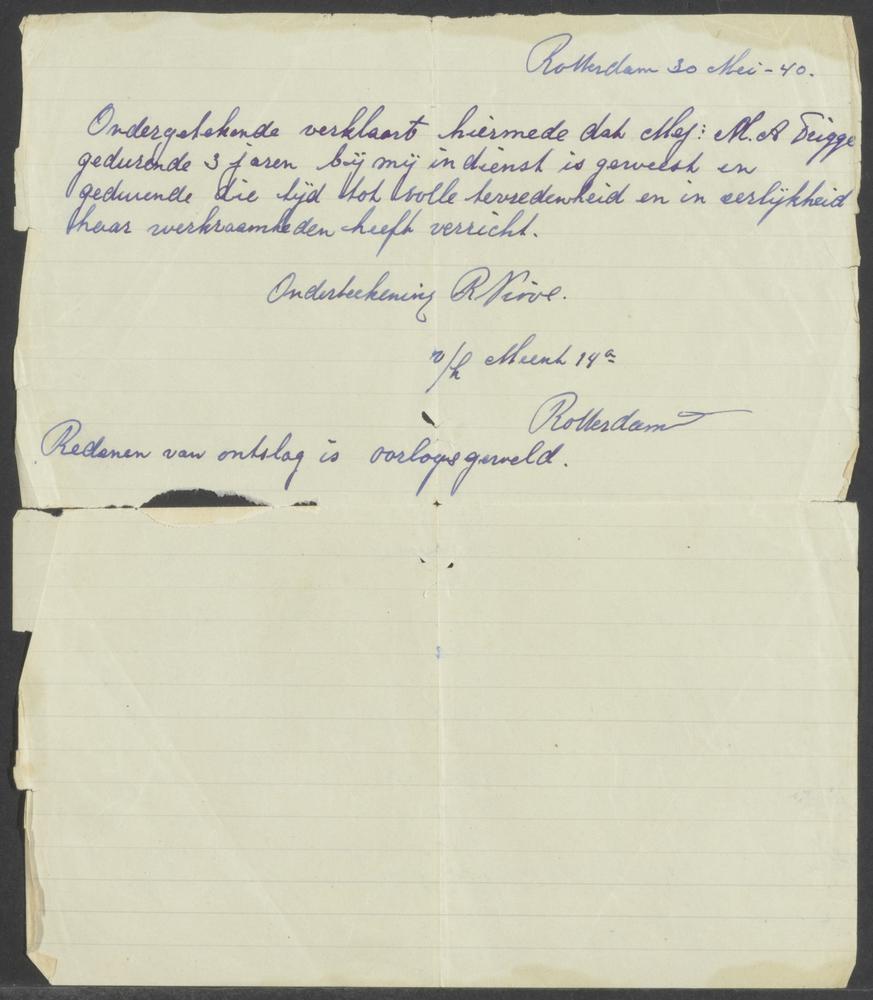 Rotterdam 30 Mei - 40.
Ondergetekende verklaart hiermede dat Mej: M. A Frigge
gedurende 3 jaren bij mij in dienst is geweest en
gedurende die tijd tot volle tevredenheid en in eerlijkheid
haar werkzaamheden heeft verricht.
Onderteekening R
v/h Meent 14a
Rotterdam
Redenen van ontslag is oorlogsgeweld.